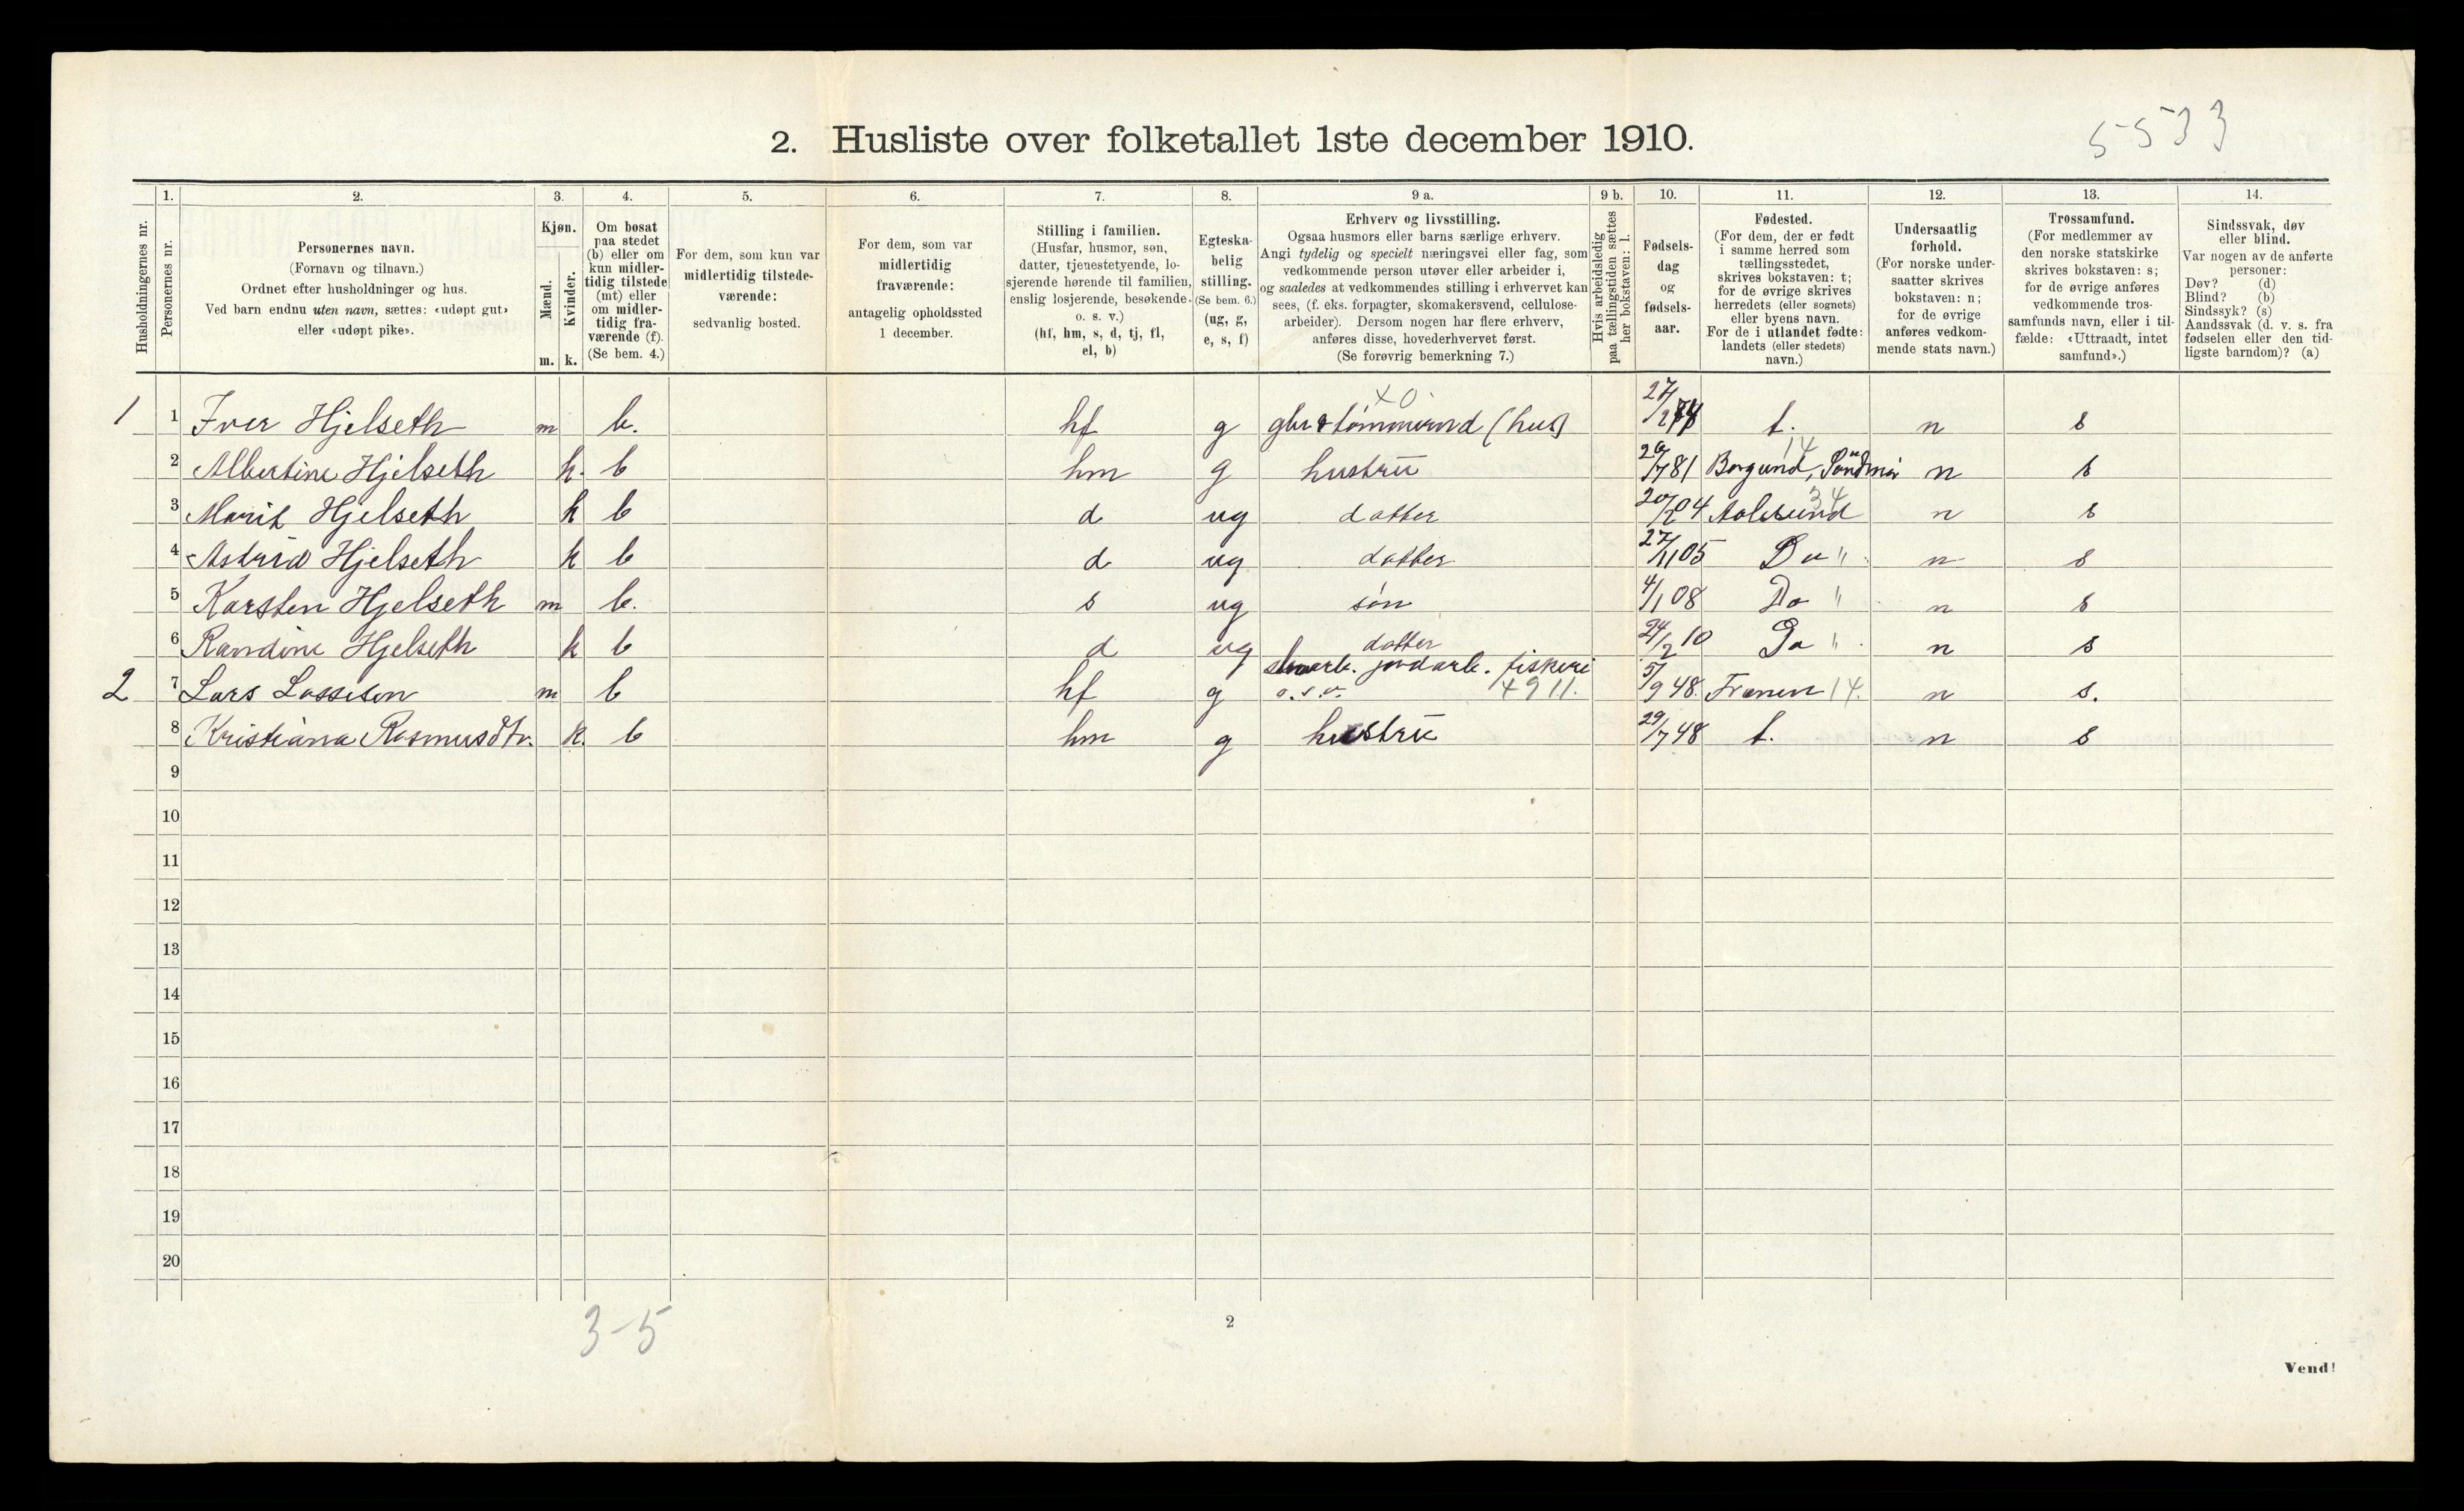 2. Husliste over folketallet 1ste december 1910.
5533
Husholdningernes nr.
1.
Personernes nr.
2.
Personernes navn.
(Fornavn og tilnavn.)
Ordnet efter husholdninger og hus.
Ved barn endnu uten navn, sættes: «udøpt gut»
eller «udøpt pike».
3.
Kjøn.
Mænd.
Kvinder.
m. k.
4.
Om bosat
paa stedet
(b) eller om
kun midler-
tidig tilstede
(mt) eller
om midler-
tidig fra-
værende (f).
(Se bem. 4.)
5.
For dem, som kun var
midlertidig tilstede-
værende:
sedvanlig bosted.
6.
For dem, som var
midlertidig
fraværende:
antagelig opholdssted
1 december.
7.
Stilling i familien.
(Husfar, husmor, søn,
datter, tjenestetyende, lo-
sjerende hørende til familien,
enslig losjerende, besøkende
o. s. v.)
(hf, hm, s, d, tj, fl,
el, b)
8.
Egteska-
belig
stilling.
(Se bem. 6.)
(ug, g,
e, s, f)
9 a.
Erhverv og livsstilling.
Ogsaa husmors eller barns særlige erhverv.
Angi tydelig og specielt næringsvei eller fag, som
vedkommende person utøver eller arbeider i,
og saaledes at vedkommendes stilling i erhvervet kan
sees, (f. eks. forpagter, skomakersvend, cellulose-
arbeider). Dersom nogen har flere erhverv,
anføres disse, hovederhvervet først.
(Se forøvrig bemerkning 7.)
9 b.
Hvis arbeidsledig
paa tællingstiden sættes
her bokstaven: l.
10.
Fødsels-
dag
og
fødsels-
aar.
11.
Fødested.
(For dem, der er født
i samme herred som
tællingsstedet,
skrives bokstaven: t;
for de øvrige skrives
herredets (eller sognets)
eller byens navn.
For de i utlandet fødte:
landets (eller stedets)
navn.)
12.
Undersaatlig
forhold.
(For norske under-
saatter skrives
bokstaven: n;
for de øvrige
anføres vedkom-
mende stats navn.)
13.
Trossamfund.
(For medlemmer av
den norske statskirke
skrives bokstaven: s;
for de øvrige anføres
vedkommende tros-
samfunds navn, eller i til-
fælde: «Uttraadt, intet
samfund».)
14.
Sindssvak, døv
eller blind.
Var nogen av de anførte
personer:
Døv? (d)
Blind? (b)
Sindssyk? (s)
Aandssvak (d. v. s. fra
fødselen eller den tid-
ligste barndom)? (a)
x 0
1 1 Iver Hjelseth m b. hf g gbr & tømmermd (hus) 27/2 74 t. n s
2 Albertine Hjelseth k. b hm g hustru /7 81 Borgund, Søndmør 14 n s
3 Marit Hjelseth k b d ug datter 20/2 04 Aalesund 34 n s
4 Astrid Hjelseth k b d ug datter 27/11 05 Do " n s
5 Karsten Hjelseth m b. s ug søn 4/1 08 Do " n s
6 Randine Hjelseth k b d ug datter 24/2 10 Do " n s
2 7 Lars Lassesen m b hf g jordarb. fiskeri o.s.v. 4911. 5/9 48. Frænen 14. n s.
8 Kristiana Rasmusdtr. k. b hm g hustru 29/7 48 t. n s
9
10
11
12
13
14
15
16
17
18
19
20
3-5
2
Vend!